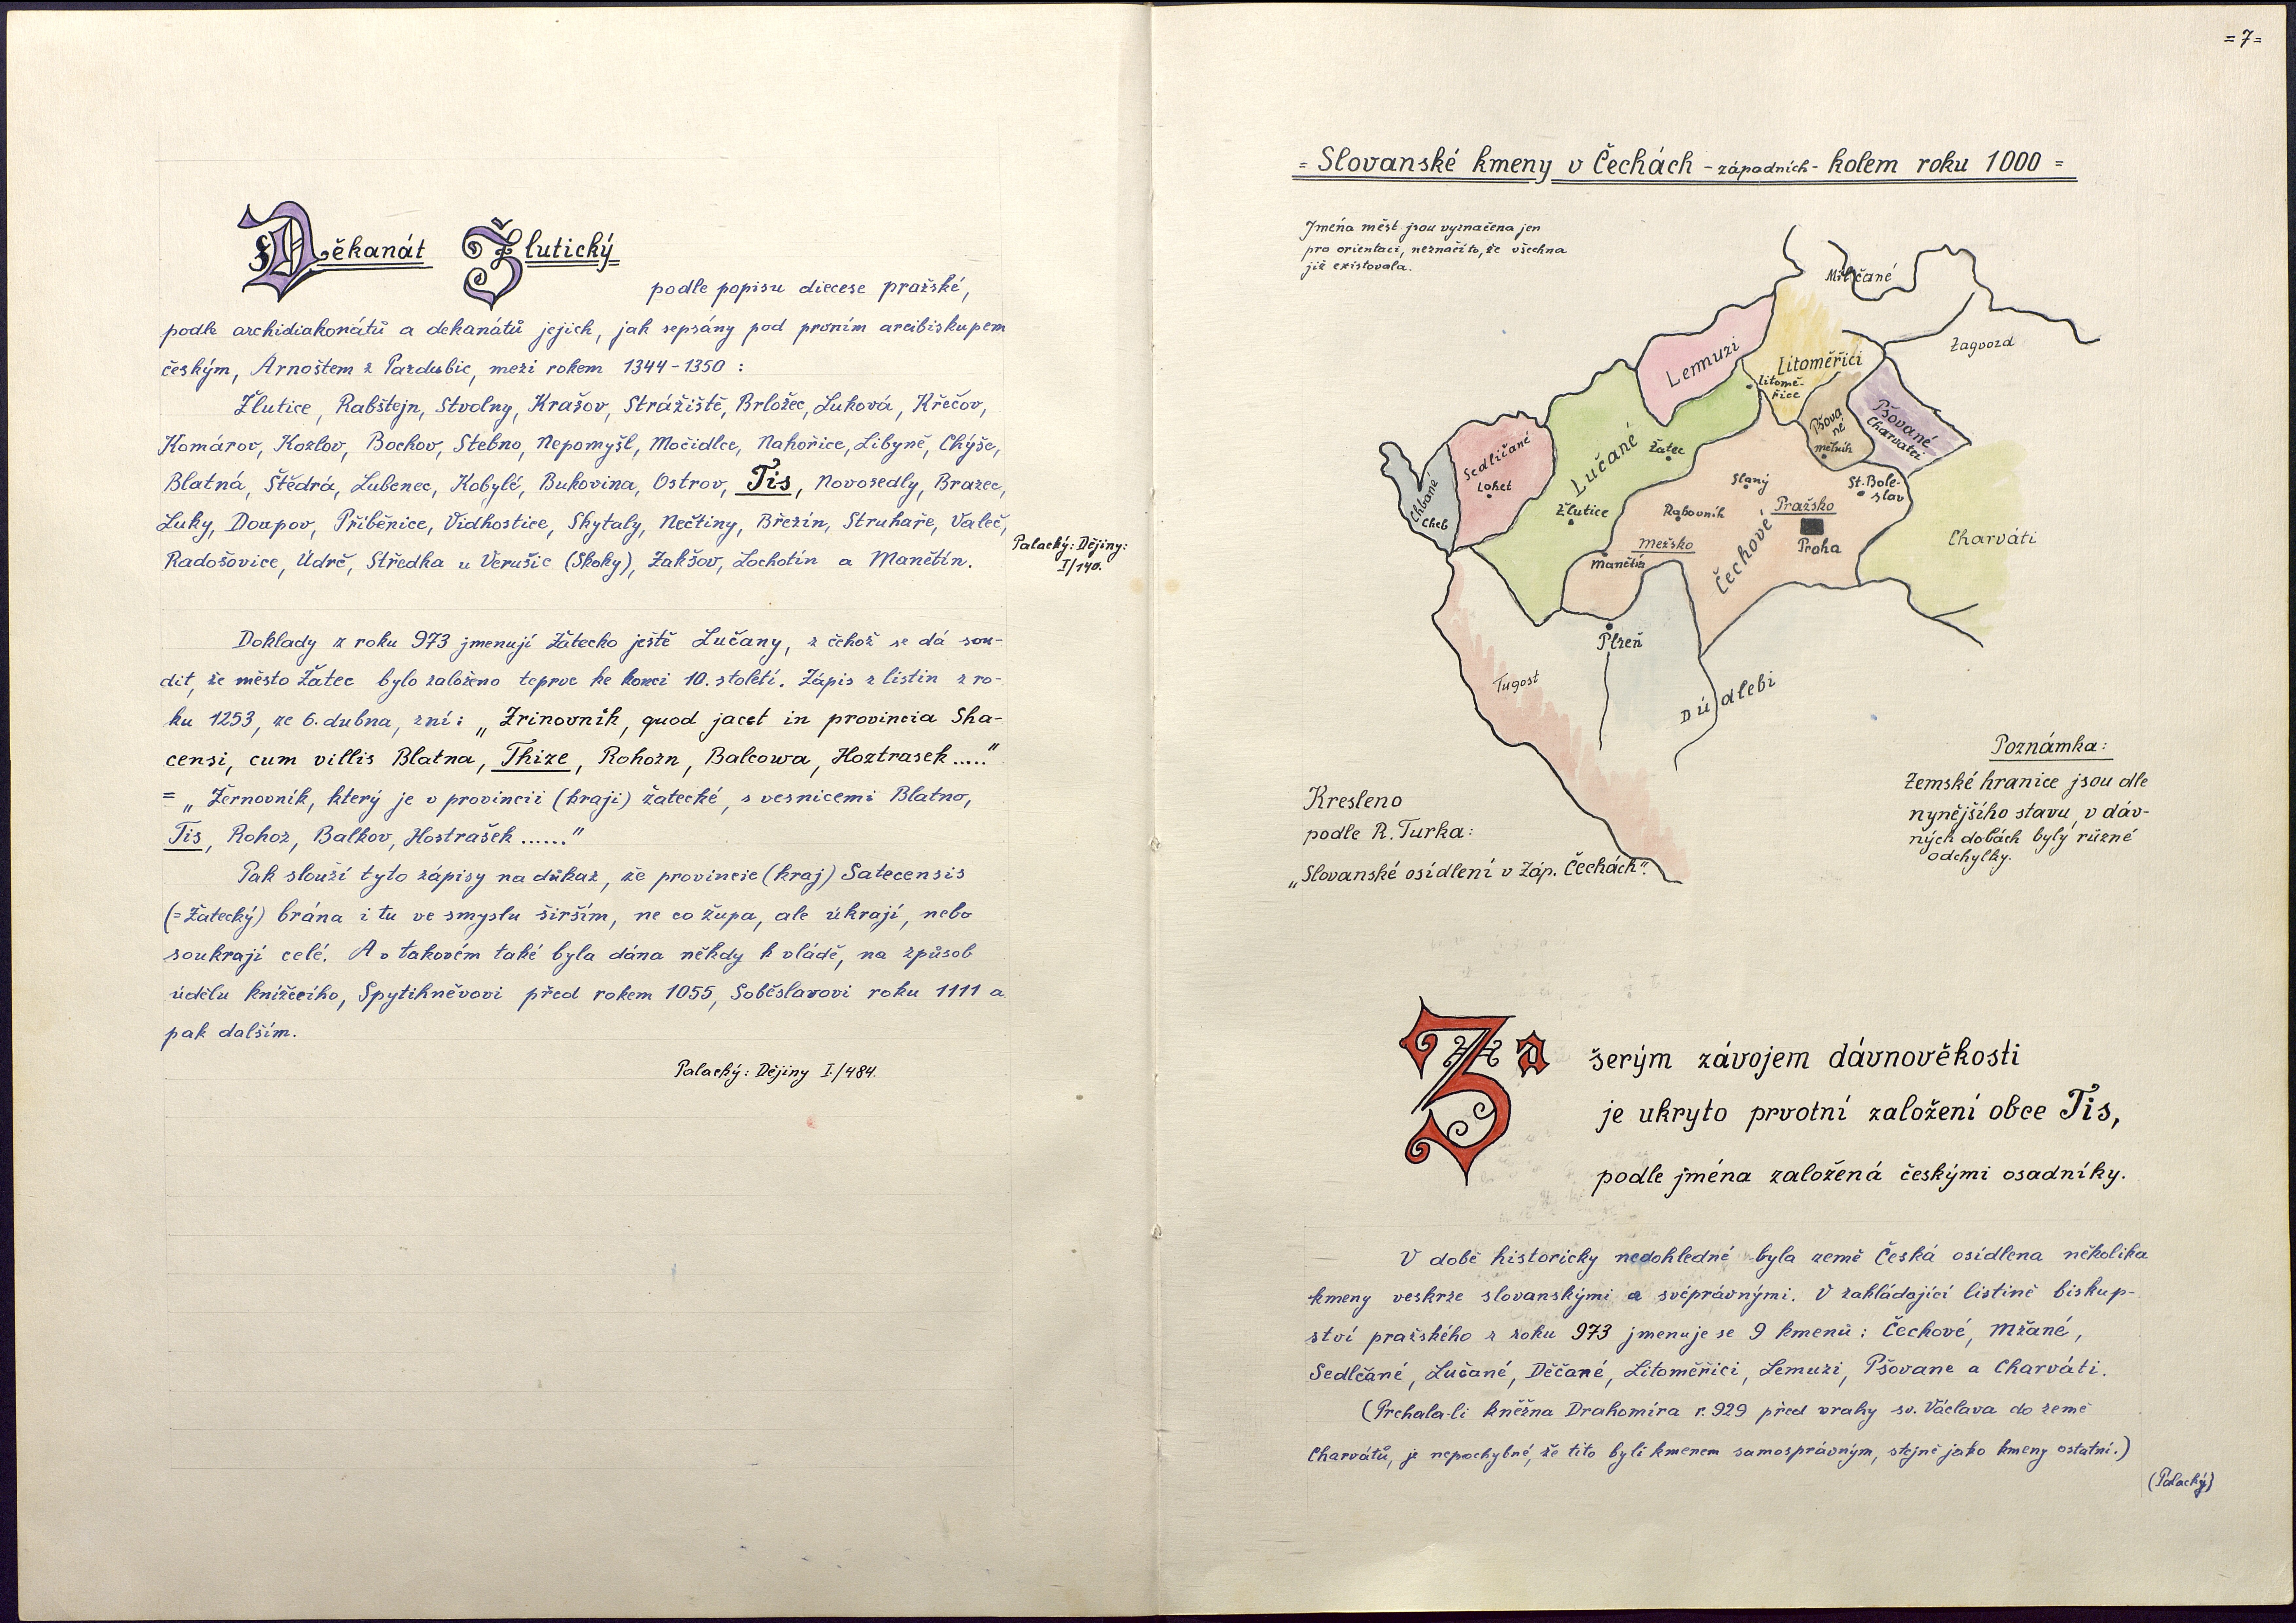 Děkanát Žlutický
podle popisu diecese pražské,
podle archidiakonátů a dekanátů jejich, jak sepsány pod prvním arcibiskupem
českým, Arnoštem z Pardubic, mezi rokem 1344-1350 :
Žlutice, Rabštejn, Stvolny, Krašov, Strážiště, Brložec, Luková, Křečov,
Komárov, Kozlov, Bochov, Stebno, Nepomyšl, Močidlce, Nahořice, Libyně, Chýše,
Blatná, Štědrá, Lubenec, Kobylé, Bukovina, Ostrov, Tis, Novosedly, Brazec,
Luky, Doupov, Příběnice, Vidhostice, Skytaly, Nečtiny, Březín, Struhaře, Valeč,
Radošovice, Údrč, Středka u Verušic (Skoky), Zakšov, Lochotín a Manětín.
Palacký: Dějiny:
I/140.
Doklady z roku 973 jmenují Žatecko ještě Lučany, z čehož se dá sou-
dit, že město Žatec bylo založeno teprve ke konci 10. století. Zápis z listin z ro-
ku 1253, ze 6. dubna, zní: „Zrinovnik, quod jacet in provincia Sha-
censi, cum villis Blatna, Thize, Rohozn, Balcowa, Hoztrasek....."
= „Žernovník, který je v provincii (kraji) žatecké, s vesnicemi Blatno,
Tis, Rohoz, Balkov, Hostrašek ......"
Pak slouží tyto zápisy na důkaz, že provincie (kraj) Satecensis
(=Žatecký) brána i tu ve smyslu širším, ne co župa, ale úkrají, nebo
soukrají celé. A v takovém také byla dána někdy k vládě, na způsob
údělu knížecího, Spytihněvovi před rokem 1055, Soběslavovi roku 1111 a
pak dalším.
Palacký: Dějiny I./484.
= 7 =
= Slovanské kmeny v Čechách - západních - kolem roku 1000 =
Jména měst jsou vyznačena jen
pro orientaci, neznačí to, že všechna
již existovala.
Milčané
Zagvozd
Lemuzi
Litoměřici
Litomě-
řice
Pšova
né
mělník
Pšované
Charvati
Sedličané
Loket
Chbané
Cheb
Lučané
Žatec
Žlutice
Slaný
Rakovník
St. Bole-
slav
Pražsko
Praha
Čechové
Mežsko
Manětín
Charváti
Plzeň
Tugost
Dúdlebi
Poznámka:
Zemské hranice jsou dle
nynějšího stavu, v dáv-
ných dobách byly různé
odchylky.
Kresleno
podle R. Turka:
„Slovanské osídlení v Záp. Čechách".
Za šerým závojem dávnověkosti
je ukryto prvotní založení obce Tis,
podle jména založená českými osadníky.
V době historicky nedohledné byla země Česká osídlena několika
kmeny veskrze slovanskými a svéprávnými. V zakládající listině biskup-
ství pražského z roku 973 jmenuje se 9 kmenů: Čechové, Mžané,
Sedlčané, Lučané, Děčané, Litoměřici, Lemuzi, Pšovane a Charváti.
(Prchala-li kněžna Drahomíra r. 929 před vrahy sv. Václava do země
Charvátů, je nepochybné, že tito byli kmenem samosprávným, stejně jako kmeny ostatní.)
(Palacký)